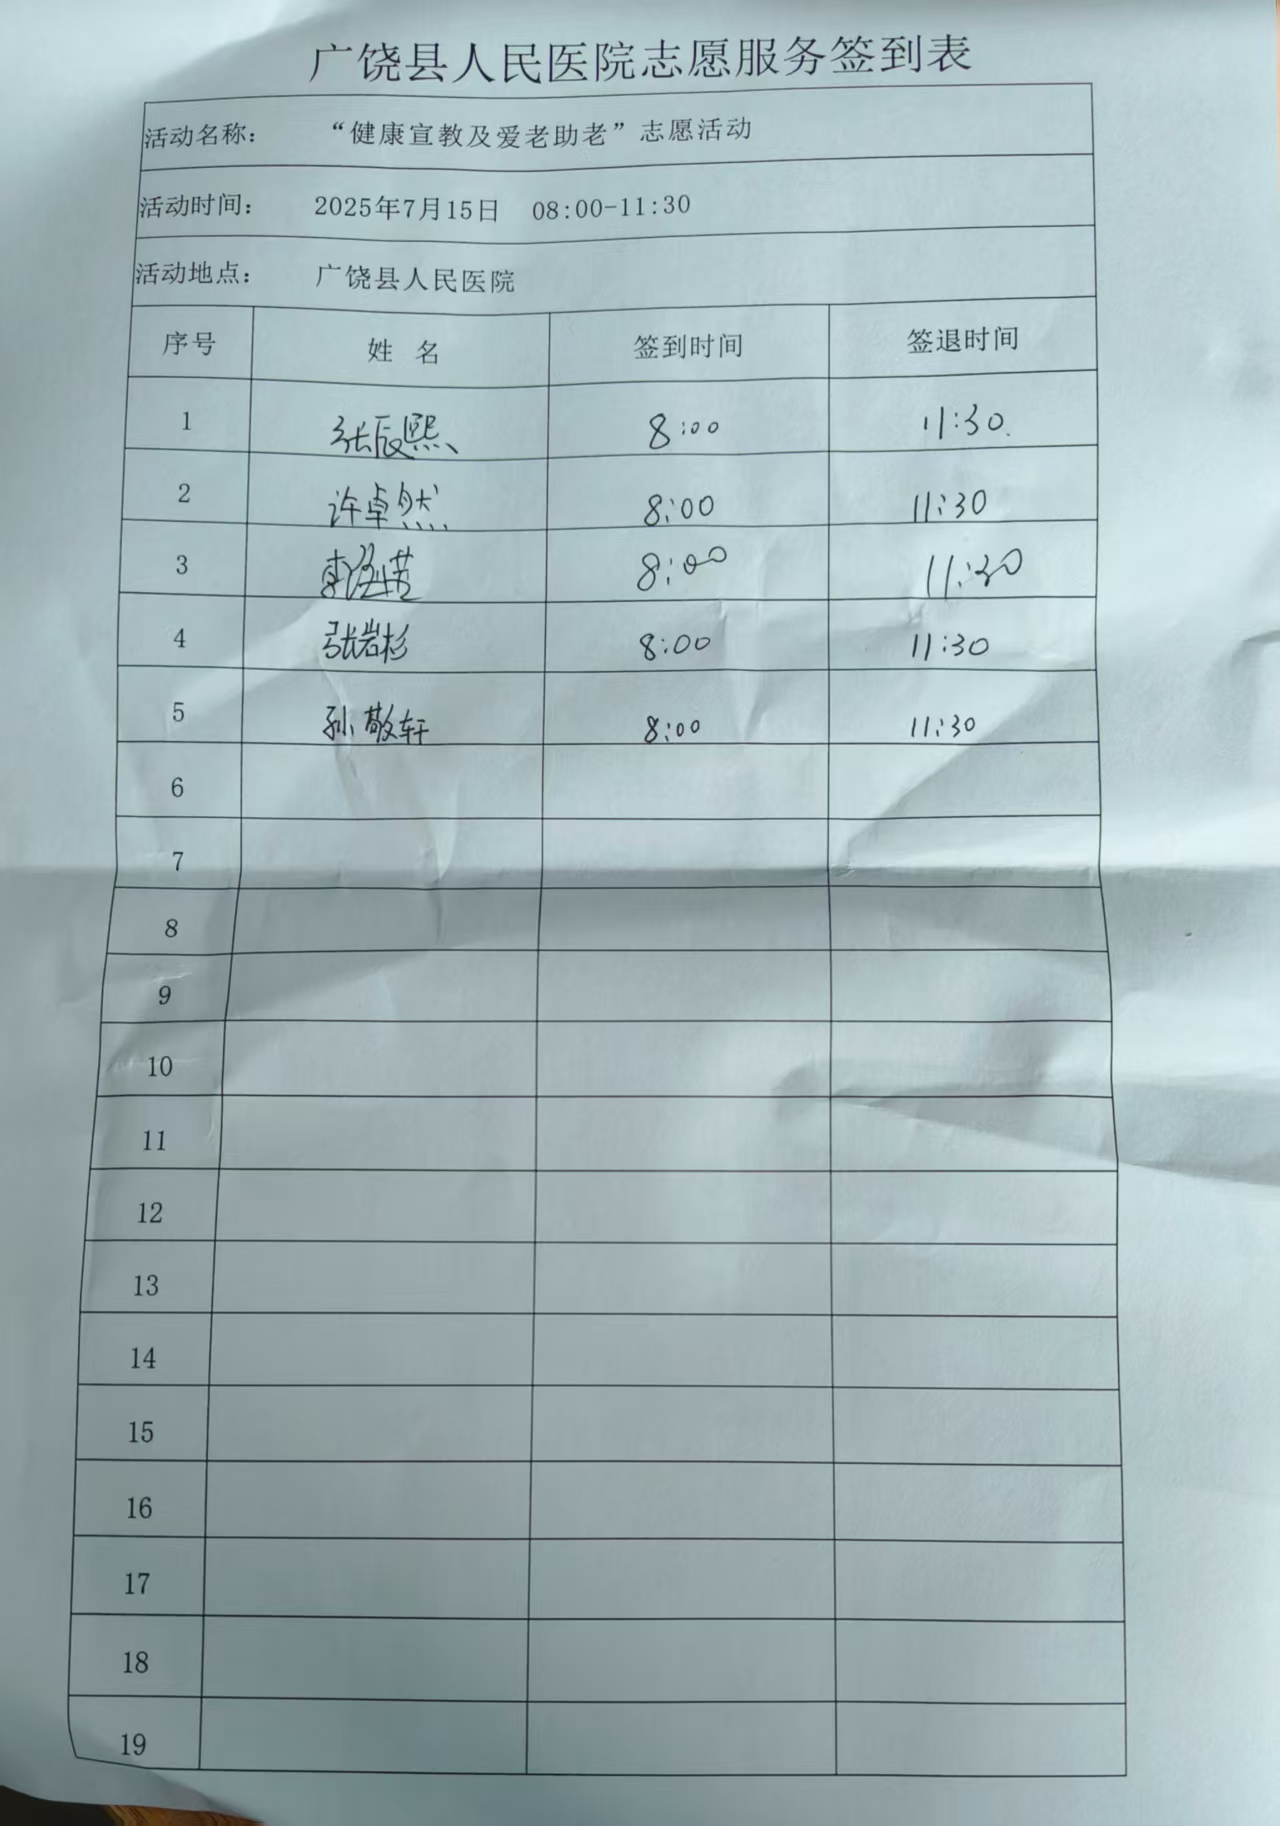 广饶县人民医院志愿服务签到表
活动名称： “健康宣教及爱老助老”志愿活动
活动时间： 2025年7月15日 08:00-11:30
活动地点： 广饶县人民医院
序号 姓 名 签到时间 签退时间
1 张辰熙 8:00 11:30
2 许卓然 8:00 11:30
3 8:00 11:30
4 张岩杉 8:00 11:30
5 孙敬轩 8:00 11:30
6
7
8
9
10
11
12
13
14
15
16
17
18
19